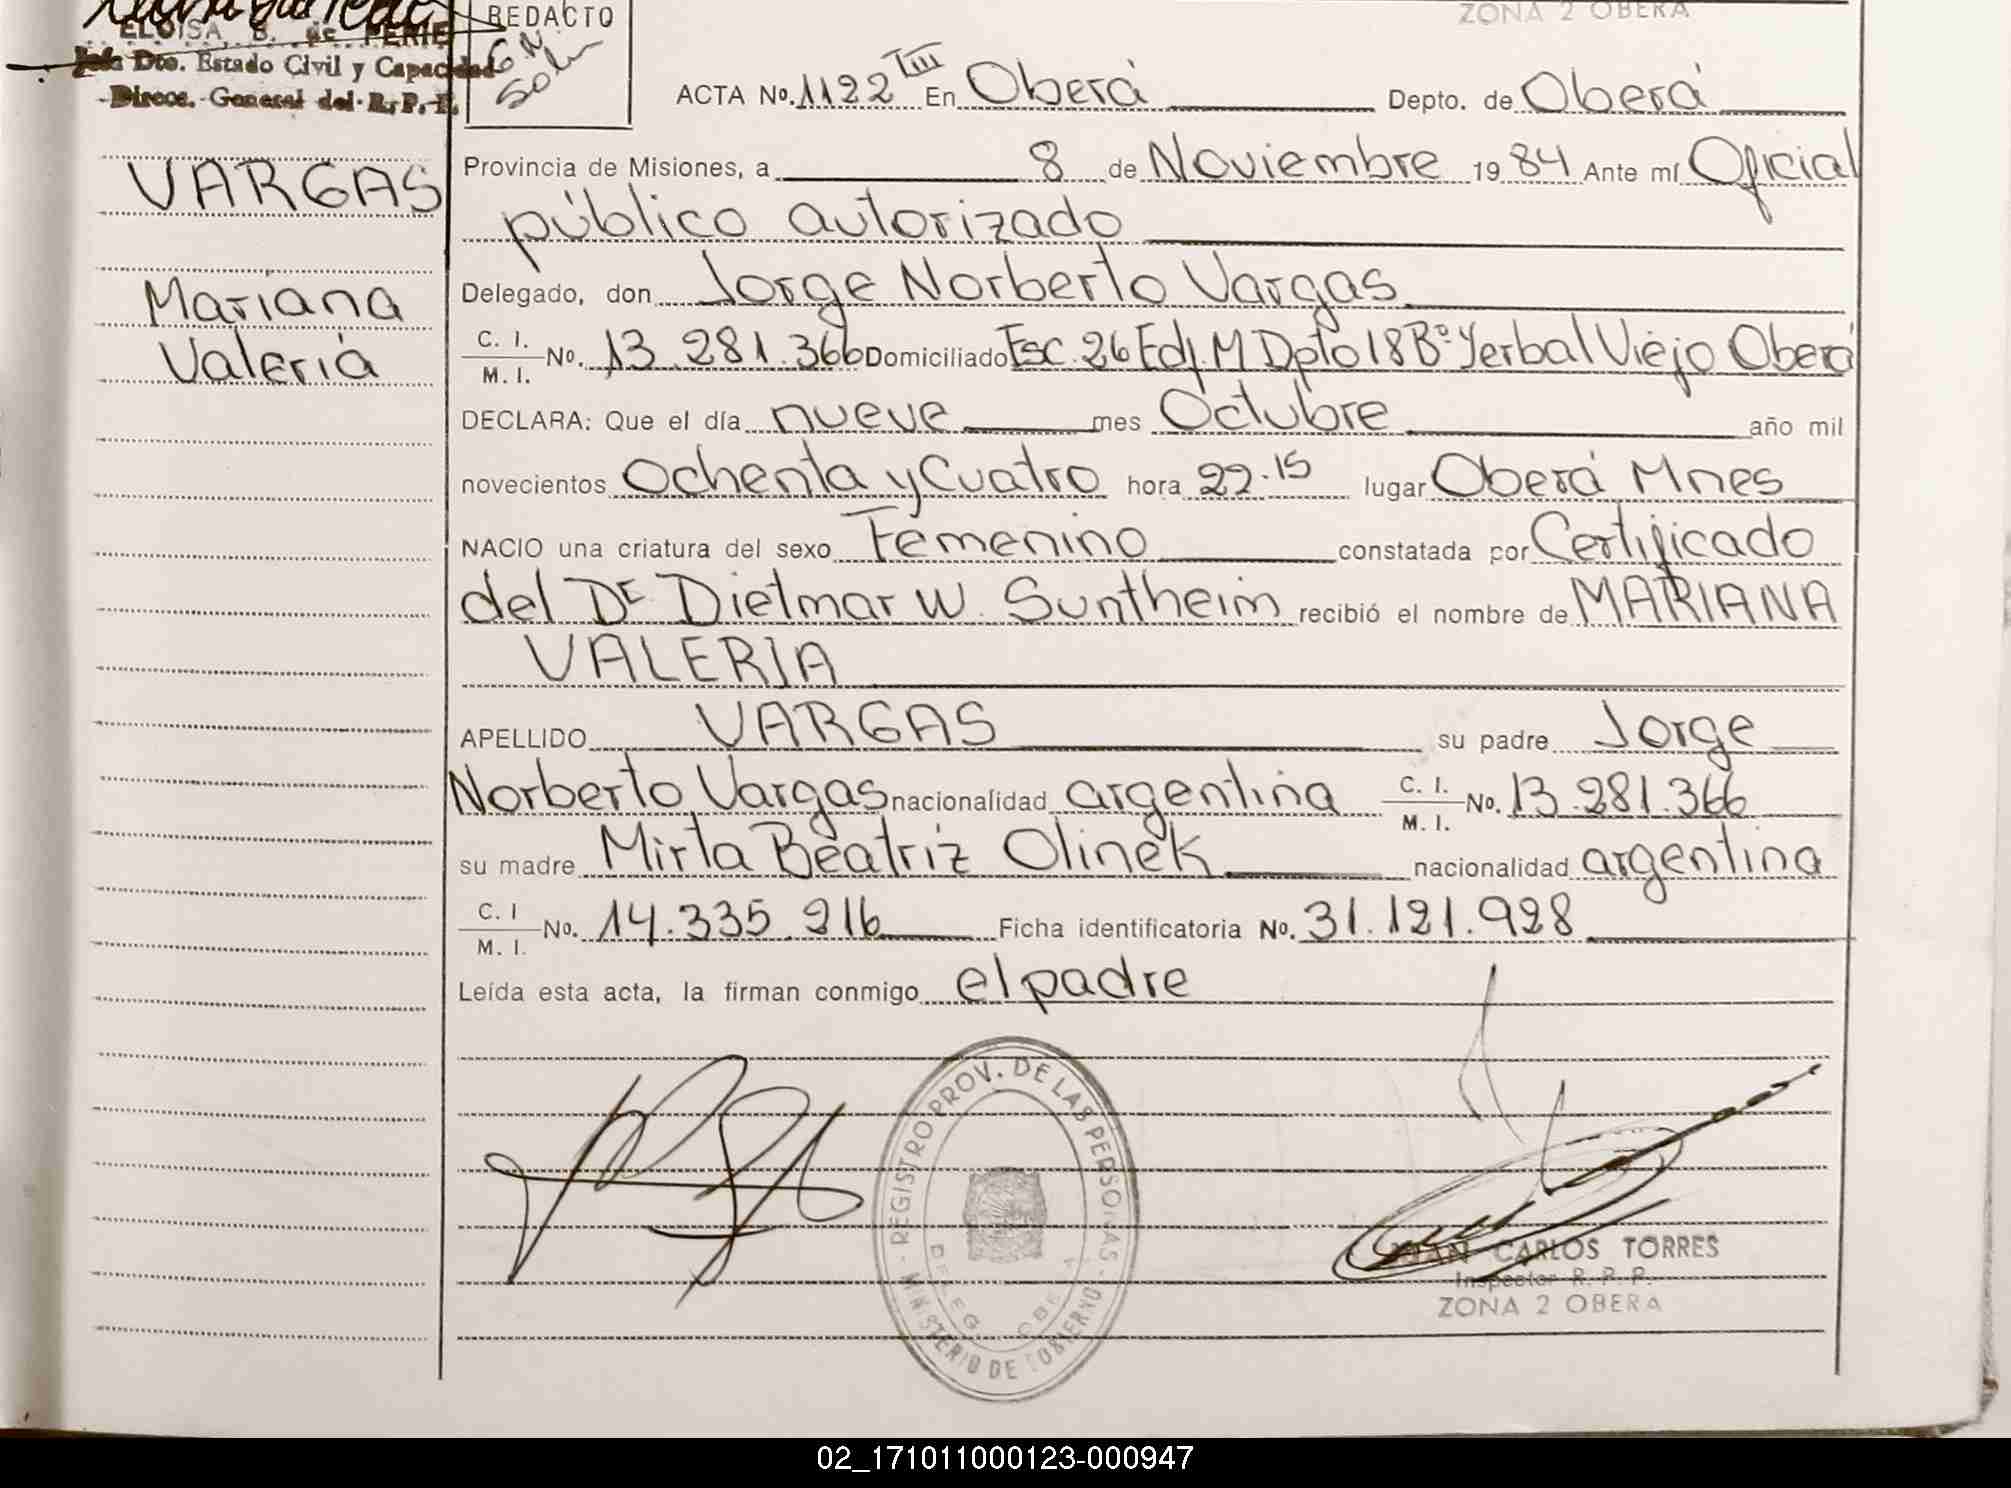 ELOISA B. de FERIE
Jefa Dto. Estado Civil y Capacidad
Direcc. General del R. P. P.
REDACTO
ZONA 2 OBERA
ACTA No. 1122 TIII En Oberá Depto. de Oberá
VARGAS
Mariana
Valeria
Provincia de Misiones, a 8 de Noviembre 1984 Ante mí Oficial
público autorizado
Delegado, don Jorge Norberto Vargas
C. I. M. I. No. 13.281.366 Domiciliado Esc. 26 Edj. M Dpto 18 Bº Yerbal Viejo Oberá
DECLARA: Que el día nueve mes Octubre año mil
novecientos Ochenta y Cuatro hora 22.15 lugar Oberá Mnes
NACIO una criatura del sexo Femenino constatada por Certificado
del Dr Dietmar W. Suntheim recibió el nombre de MARIANA
VALERIA
APELLIDO VARGAS su padre Jorge
Norberto Vargas nacionalidad argentina C. I. M. I. No. 13.281.366
su madre Mirta Beatriz Olinek nacionalidad argentina
C. I M. I. No. 14.335.216 Ficha identificatoria No. 31.121.928
Leída esta acta, la firman conmigo el padre
REGISTRO PROV. DE LAS PERSONAS - MINISTERIO DE GOBIERNO -
DELEG. OBERA
JUAN CARLOS TORRES
Inspector R. P. P.
ZONA 2 OBERA
02_171011000123-000947